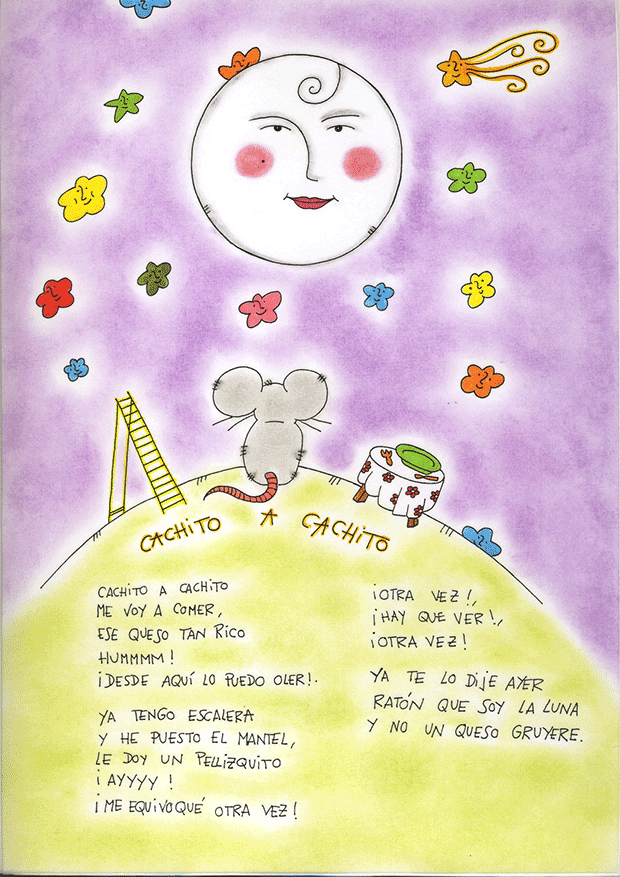 CACHITO A CACHITO
CACHITO A CACHITO
ME VOY A COMER,
ESE QUESO TAN RICO
HUMMMM!
¡DESDE AQUÍ LO PUEDO OLER!.
YA TENGO ESCALERA
Y HE PUESTO EL MANTEL,
LE DOY UN PELLIZQUITO
¡AYYYY!
¡ME EQUIVOQUÉ OTRA VEZ!
¡OTRA VEZ!,
¡HAY QUE VER!,
¡OTRA VEZ!
YA TE LO DIJE AYER
RATÓN QUE SOY LA LUNA
Y NO UN QUESO GRUYERE.